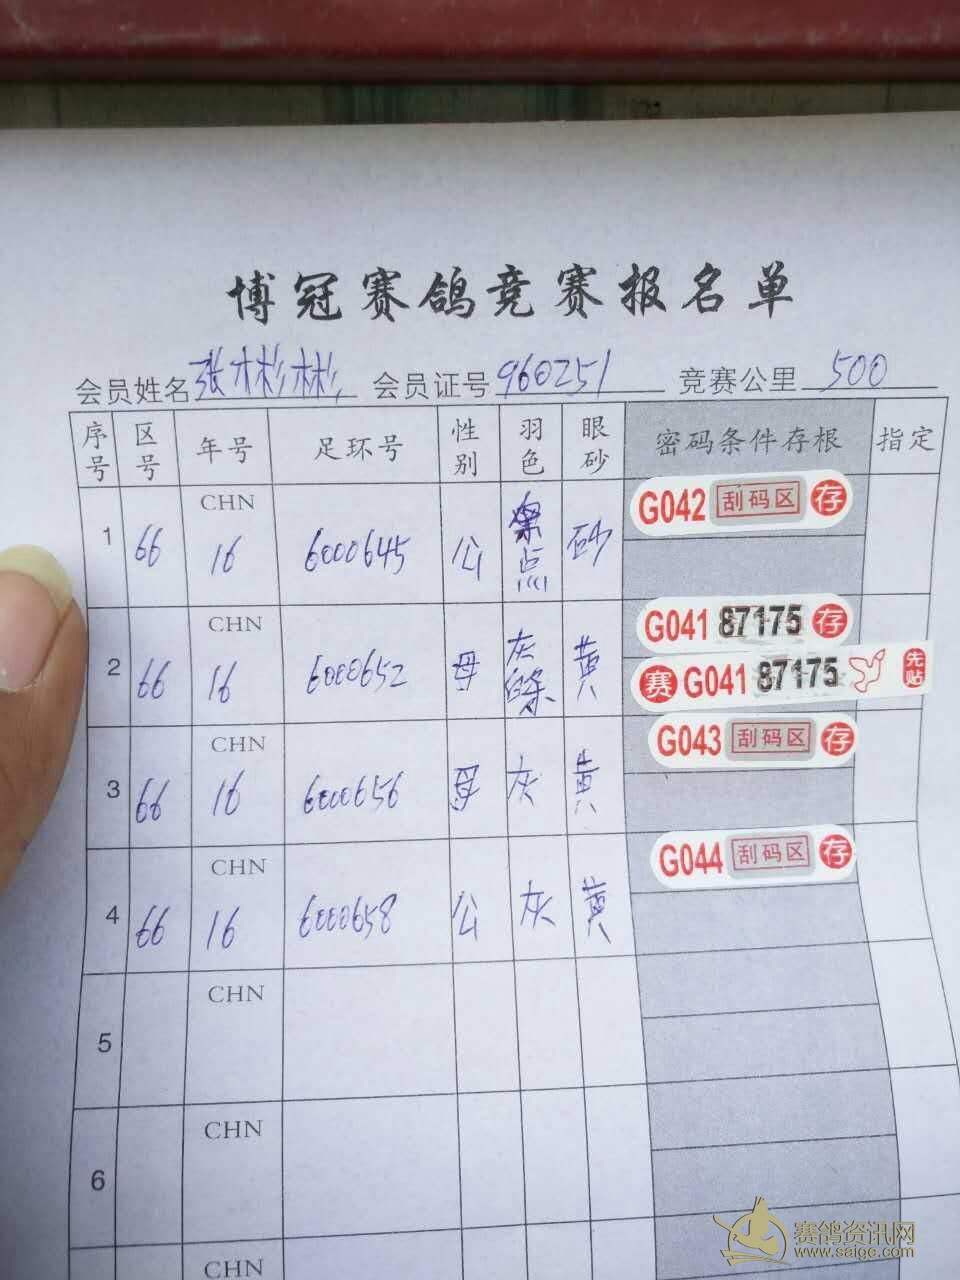 博冠赛鸽竞赛报名单
会员姓名 张彬彬 会员证号 960251 竞赛公里 500
序号 区号 年号 足环号 性别 羽色 眼砂 密码条件存根 指定
1 66 CHN 16 6000645 公 点 砂 G042 刮码区 存
2 66 CHN 16 6000652 母 灰白条 黄 G041 87175 存
赛 G041 87175 先贴
3 66 CHN 16 6000656 母 灰 黄 G043 刮码区 存
4 66 CHN 16 6000658 公 灰 黄 G044 刮码区 存
5 CHN
6 CHN
CHN
赛鸽资讯网
www.saige.com